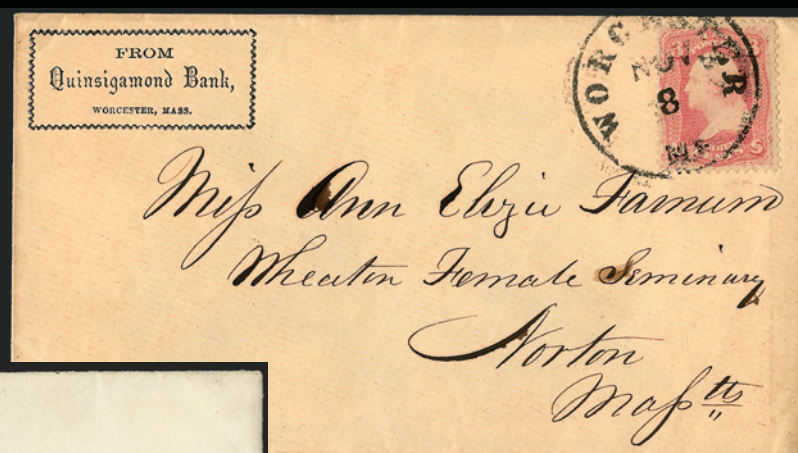 FROM
Quinsigamond Bank,
WORCESTER, MASS.
WORCESTER
NOV
8
MS
3 3
S
Miſs Ann Elizie Farnum
Wheaton Female Seminary
Norton
Maſstts